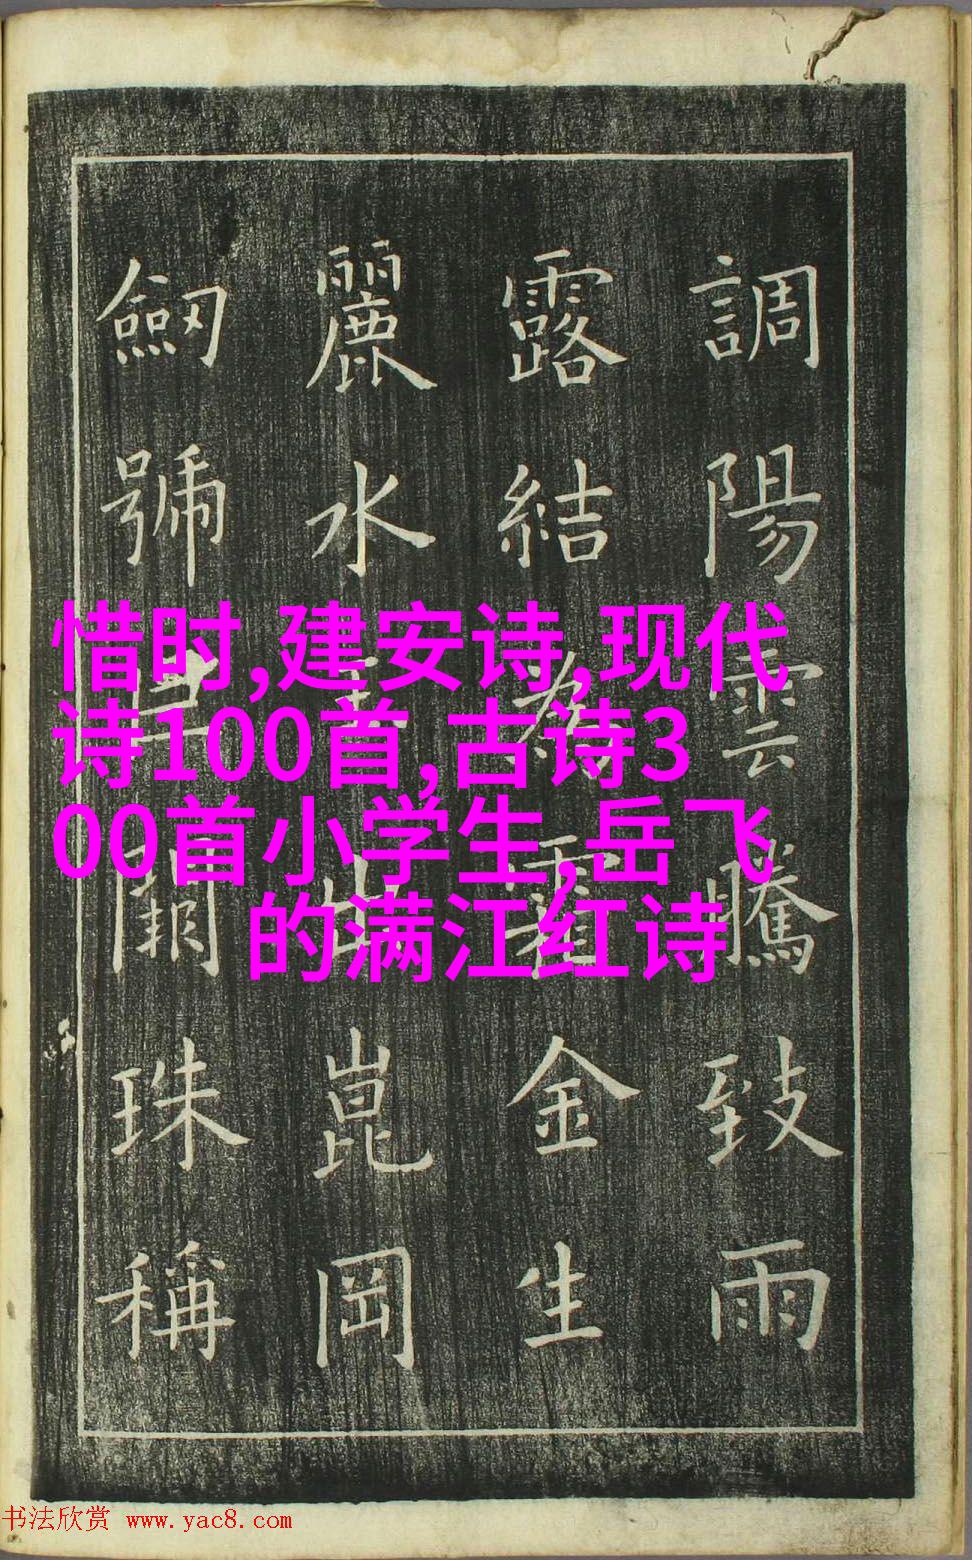 調陽雲騰致雨
露結為霜金生
麗水玉出崑岡
劒號巨闕珠稱
惜时,建安诗,现代
诗100首,古诗3
00首小学生,岳飞
的满江红诗
书法欣赏 www.yac8.com